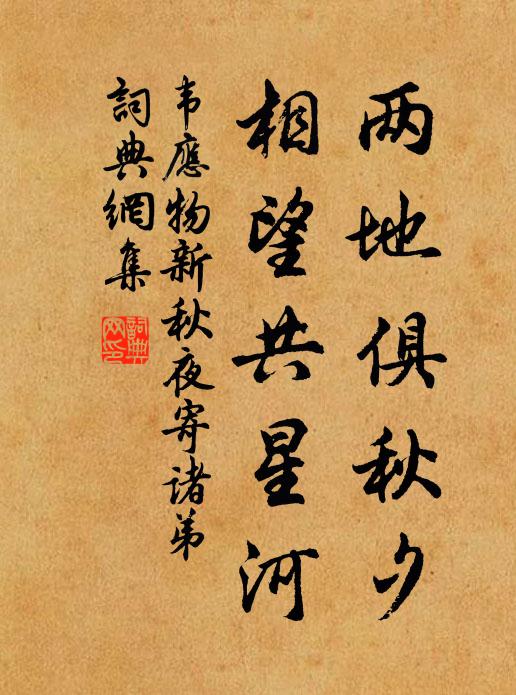 两地俱秋夕
相望共星河
韦應物新秋夜寄诸弟
詞典網集
詞典網印